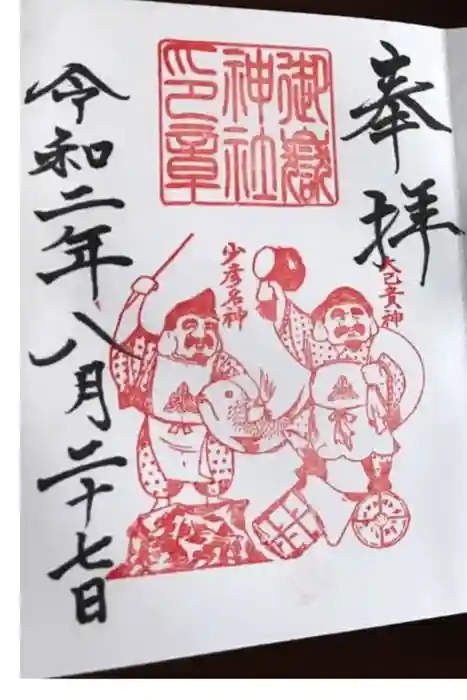 奉拝
御嶽
神社
印章
大己貴神
少彦名神
令和二年八月二十七日